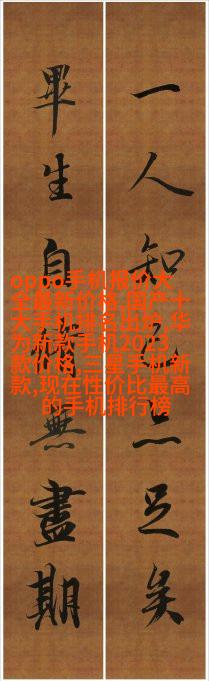 一人知亦足矣
畢生自無盡期
oppo手机报价大
全最新价格,国产十
大手机排名出炉,华
为新款手机2023
款价格,三星手机新
款,现在性价比最高
的手机排行榜